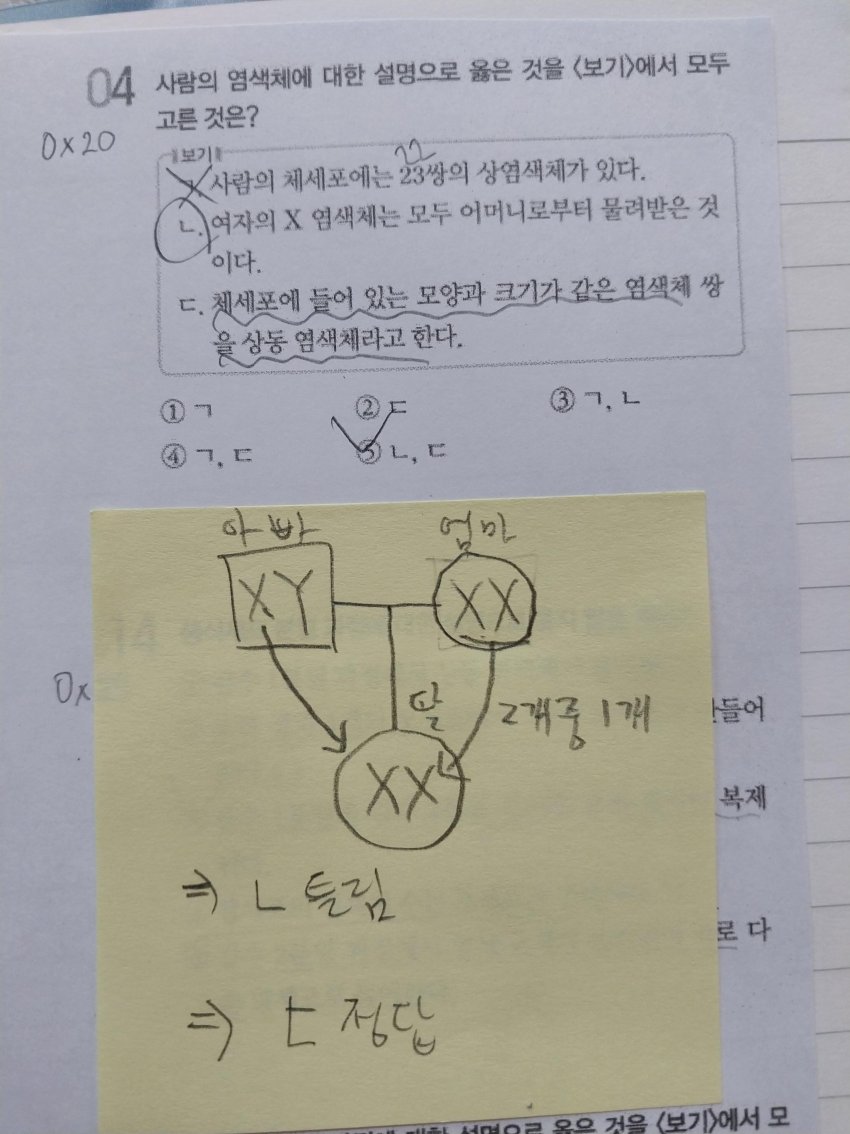 04 사람의 염색체에 대한 설명으로 옳은 것을 <보기>에서 모두
고른 것은?
0×20
보기
22
ㄱ. 사람의 체세포에는 23쌍의 상염색체가 있다.
ㄴ. 여자의 X 염색체는 모두 어머니로부터 물려받은 것
이다.
ㄷ. 체세포에 들어 있는 모양과 크기가 같은 염색체 쌍
을 상동 염색체라고 한다.
① ㄱ ② ㄷ ③ ㄱ, ㄴ
④ ㄱ, ㄷ ⑤ ㄴ, ㄷ
아빠 엄마
XY XX
0×
딸 2개중 1개
들어
XX
복제
⇒ ㄴ 틀림
로 다
⇒ ㄷ 정답
대한 설명으로 옳은 것을 <보기>에서 모